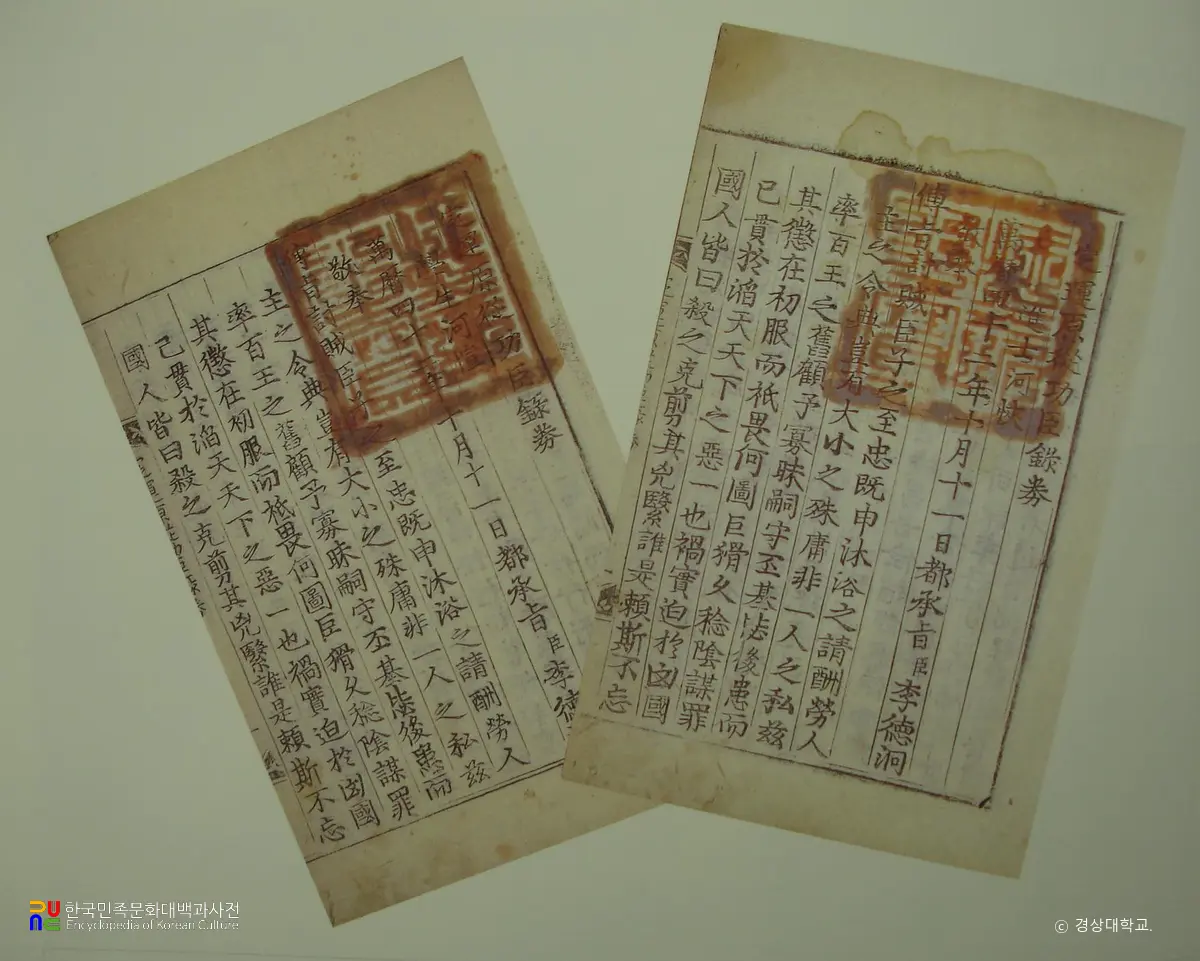 定運原從功臣錄券
進士河
萬曆四十二年十月十一日都承旨臣李德泂
敬奉
傳旨討賊臣子之至忠既申沐浴之請酬勞人
主之令典豈有大小之殊庸非一人之私茲
率百王之舊顧予寡昧嗣守丕基毖後患而
其懲在初服而祗畏何圖巨猾久稔陰謀罪
已貫於滔天天下之惡一也禍實迫於凶國
國人皆曰殺之克剪其兇繄誰是賴斯不忘
定運原從功臣錄券
生河
萬曆四十二年十月十一日都承旨臣李德
敬奉
傳旨討賊臣子之至忠既申沐浴之請酬勞人
主之令典豈有大小之殊庸非一人之私茲
率百王之舊顧予寡昧嗣守丕基毖後患而
其懲在初服而祗畏何圖巨猾久稔陰謀罪
已貫於滔天天下之惡一也禍實迫於凶國
國人皆曰殺之克剪其兇繄誰是賴斯不忘
한국민족문화대백과사전
Encyclopedia of Korean Culture
© 경상대학교.